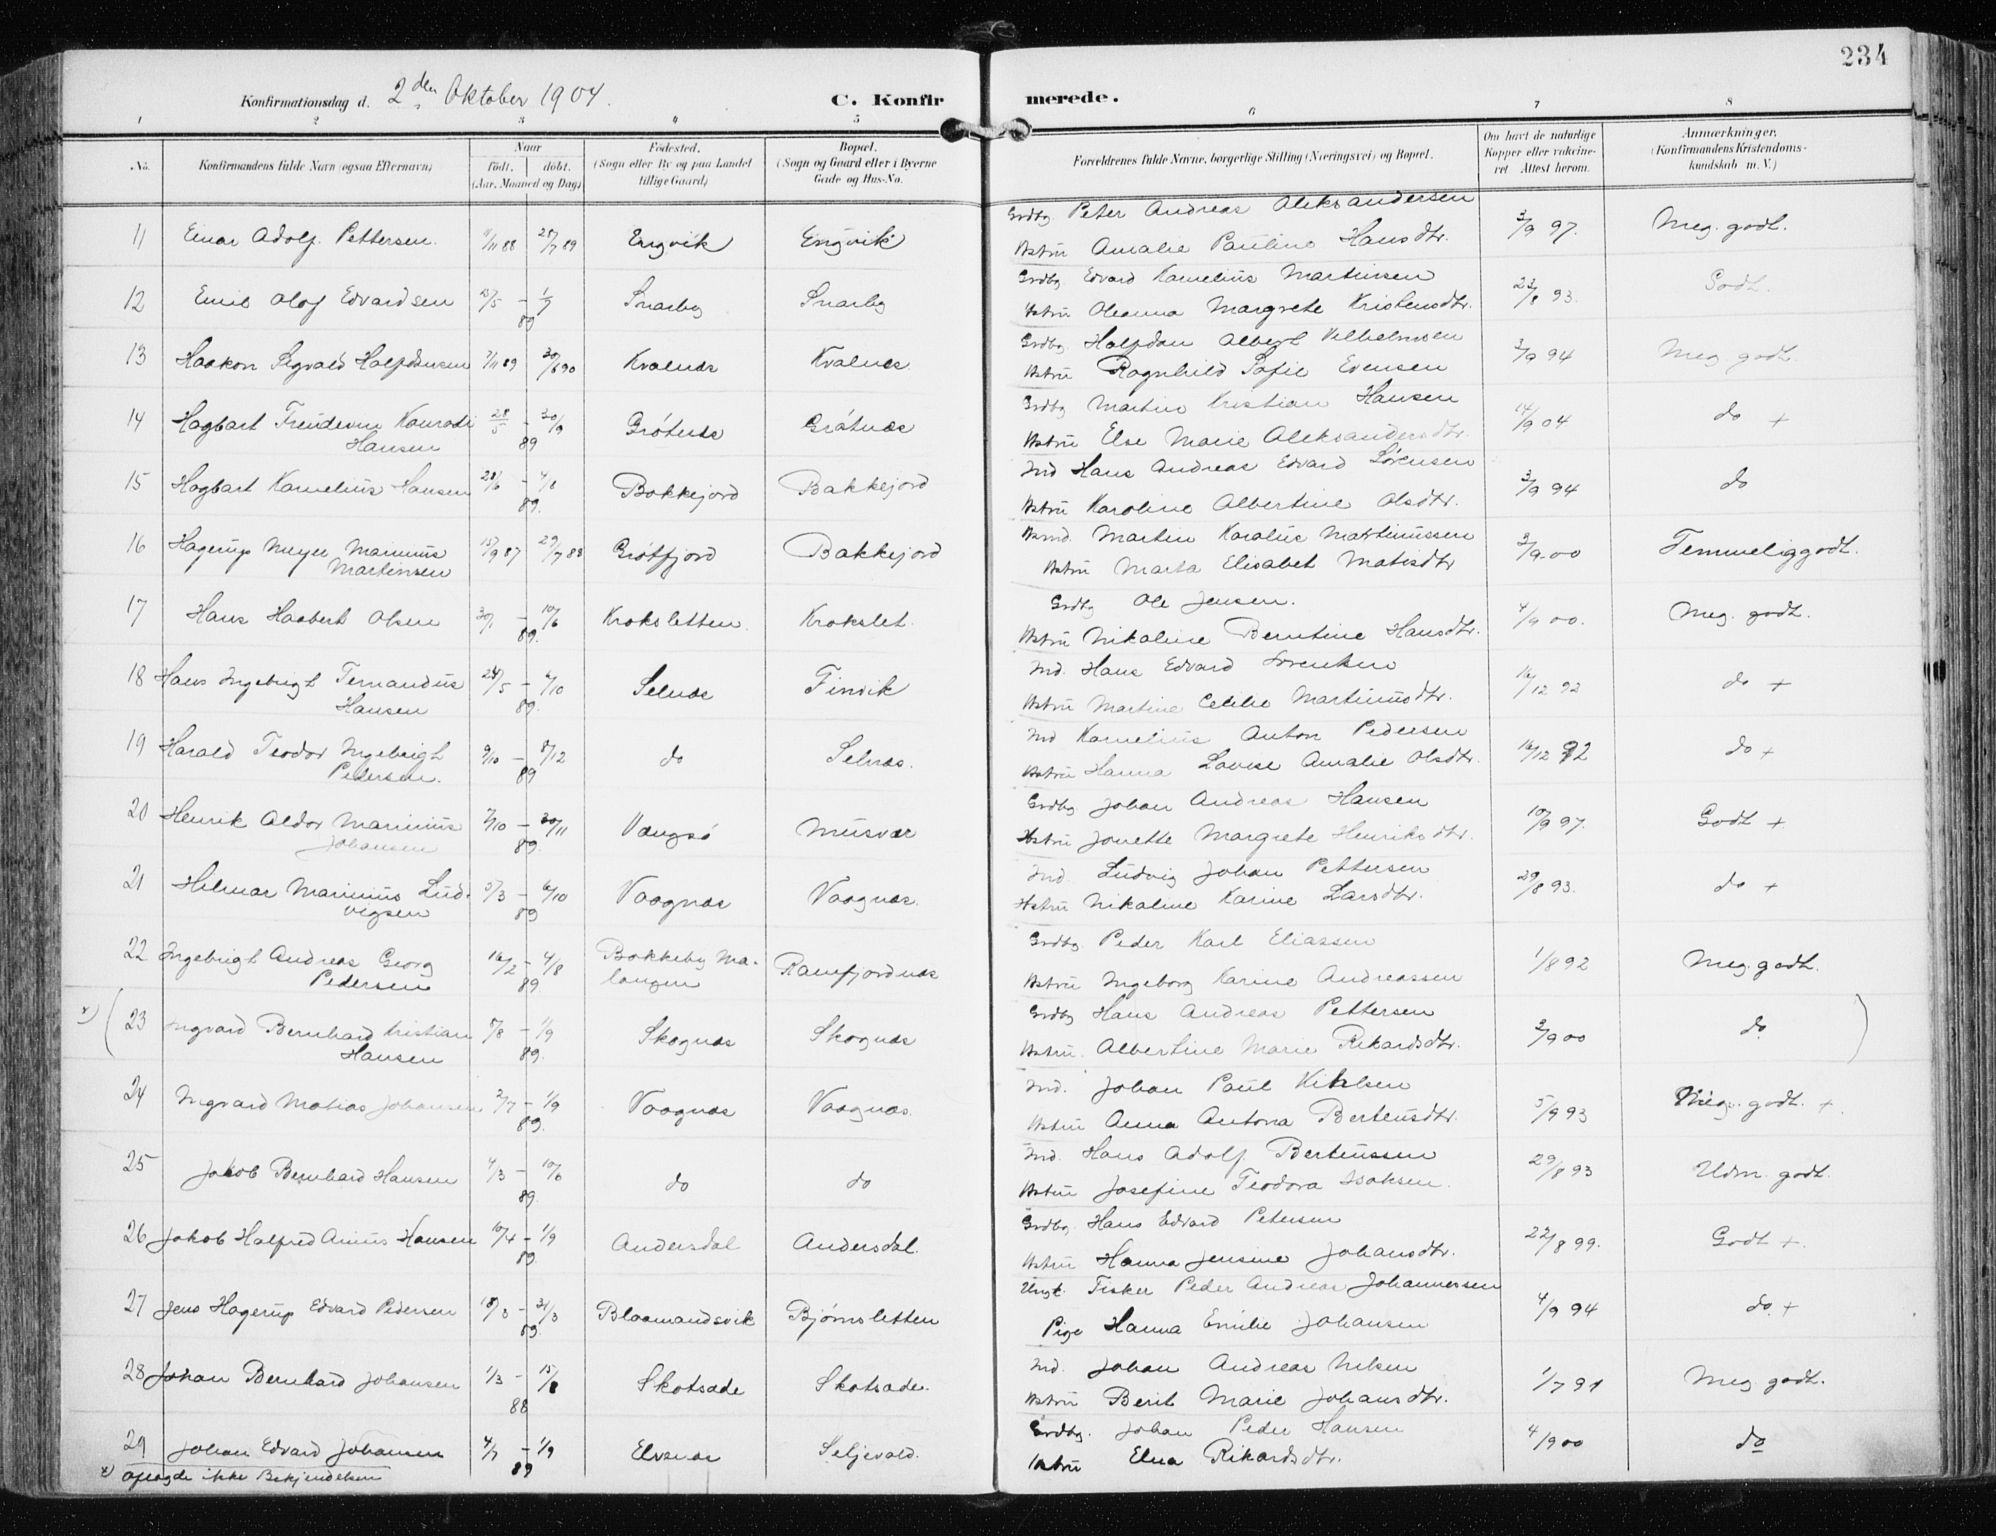 234
Konfirmationsdag d. 2den Oktober 1904. C. Konfirmerede.
1 2 3 4 5 6 7 8
No. Konfirmandens fulde Navn (ogsaa Efternavn) Naar født. døbt. (Aar, Maaned og Dag) Fødested. (Sogn eller By og paa Landet tillige Gaard) Bopæl. (Sogn og Gaard eller i Byerne Gade og Hus-No. Forældrenes fulde Navne, borgerlige Stilling (Næringsvei) og Bopæl. Om havt de naturlige Kopper eller vakcineret Attest herom. Anmærkninger. (Konfirmandens Kristendomskundskab m. V.)
Grdbg Peter Andreas Aleksandersen
11 Einar Adolf Pettersen. 9/11 88 28/7 89 Engvik Engvik 3/9 97. Meg. godt.
Hstru Amalie Pauline Hansdtr.
Grdbg Edvard Kornelius Martinsen
12 Emil Olof Edvardsen 23/5 – 1/9 89 Snarby Snarby 23/8 93. Godt.
Hstru Oleanna Margrete Kristensdtr.
Grdbg. Halfdan Albert Vilhelmsen
13 Haakon Sigvald Halfdansen 7/11 89 30/6 90 Kvalnæs Kvalnæs 3/9 94 Meg. godt.
Hstru Ragnhild Sofie Evensen
Grdbg Martin Kristian Hansen
14 Hagbart Konradi 28/5 – 30/9 Grøtnæs Grøtnæs 14/9 04 do +
Hansen 89 Hstru Else Marie Aleksandersdtr.
Ind Hans Andreas Edvard Sørensen
15 Hagbart Kornelius Hansen 28/6 – 4/8 89. Bakkejord Bakkejord 3/9 94 do
Hstru Karoline Albertine Olsdtr.
Martin Karolius Martinussen
16 Hagerup Meyer Marinius 15/9 87 29/7 88 Grøtfjord Bakkejord 3/9 00 Temmelig godt.
Martinsen Hstru Marta Elisabet Matisdtr
Grdbg Ole Jensen.
17 Hans Haabert Olsen 30/1 – 10/6 89. Kroksletten Krokslet. 4/9 00. Meg. godt.
Hstru Nikoline Berntine Hansdtr.
Ind. Hans Edvard Sørensen
18 Hans Ingebrigt Fernandus 24/5 – 6/10 Selnæs Finvik 16/12 92 do +
Hansen 89. Hstru Martine Martinusdtr.
Ind Kornelius Anton Pedersen
19 Harald Teodor Ingebrigt 9/10 – 8/12 do Selnæs. 16/12 92 do +
Pedersen. 89 Hstru Hanna Lovise Amalie Olsdtr.
Grdbg Johan Andreas Hansen
20 Henrik Aldor Marinius 7/10 – 30/11 Vengsø Musvær 10/9 97. Godt +
Johansen 89. Hstru Jonette Margrete Henriksdtr.
Ind. Ludvig Johan Pettersen
21 Hilmar Marinius Lud- 5/3 – 6/10 Vaagnæs Vaagnæs. 29/8 93. do +
vigsen 89 Hstru Nikoline Karine Larsdtr.
Grdbg. Peder Karl Eliassen
22 Ingebrigt Andreas Georg 16/2 – 4/8 Bakkeby Ma- Ramfjordnæs 1/8 92 Meg. godt.
Pedersen 89 langen Hstru Ingeborg Karine Andreassen
Grdbg Hans Andreas Pettersen
x) ( 23 Ingvard Bernhard Kristian 8/8 – 1/9 Skognæs Skognæs 3/9 00 do )
Hansen 89. Hstru. Albertine Marie Rikardsdtr.
Ind. Johan Paul Kiilsen
24 Ingvard Matias Johansen 2/7 – 1/9 89. Vaagnæs Vaagnæs. 5/9 93 Meg. godt. +
Hstru Anna Antona Bertensdtr.
Ind. Hans Adolf Berteussen
25 Jakob Bernhard Hansen 4/3 – 10/6 89. do do 29/8 93 Udm. godt.
Hstru Josefine Teodora Isaksen.
Grdbg. Hans Edvard Petersen
26 Jakob Halfred Arnius Hansen 10/4 – 1/9 89. Andersdal Andersdal. 22/8 99. Godt +
Hstru Hanna Jensine Johansdtr.
Ungk. Fisker Peder Andreas Johannessen
27 Jens Hagerup Edvard Pedersen 18/3 – 31/3 89. Blaamandsvik Bjørnsletten 4/9 94 do +
Pige Hanna Emilie Johansen
Ind. Johan Andreas Nilsen
28 Johan Bernhard Johansen 1/3 – 15/8 88 Skotsæde Skotsæde. 1/7 91 Meg godt.
Hstru Berit Marie Johansdtr.
Grdbg. Johan Peder Hansen
29 Johan Edvard Johansen 4/7 – 1/9 89 Elvenæs 4/9 00 do
Hstru Elna Rikardsdtr.
x) aflagde ikke Bekjendelsen